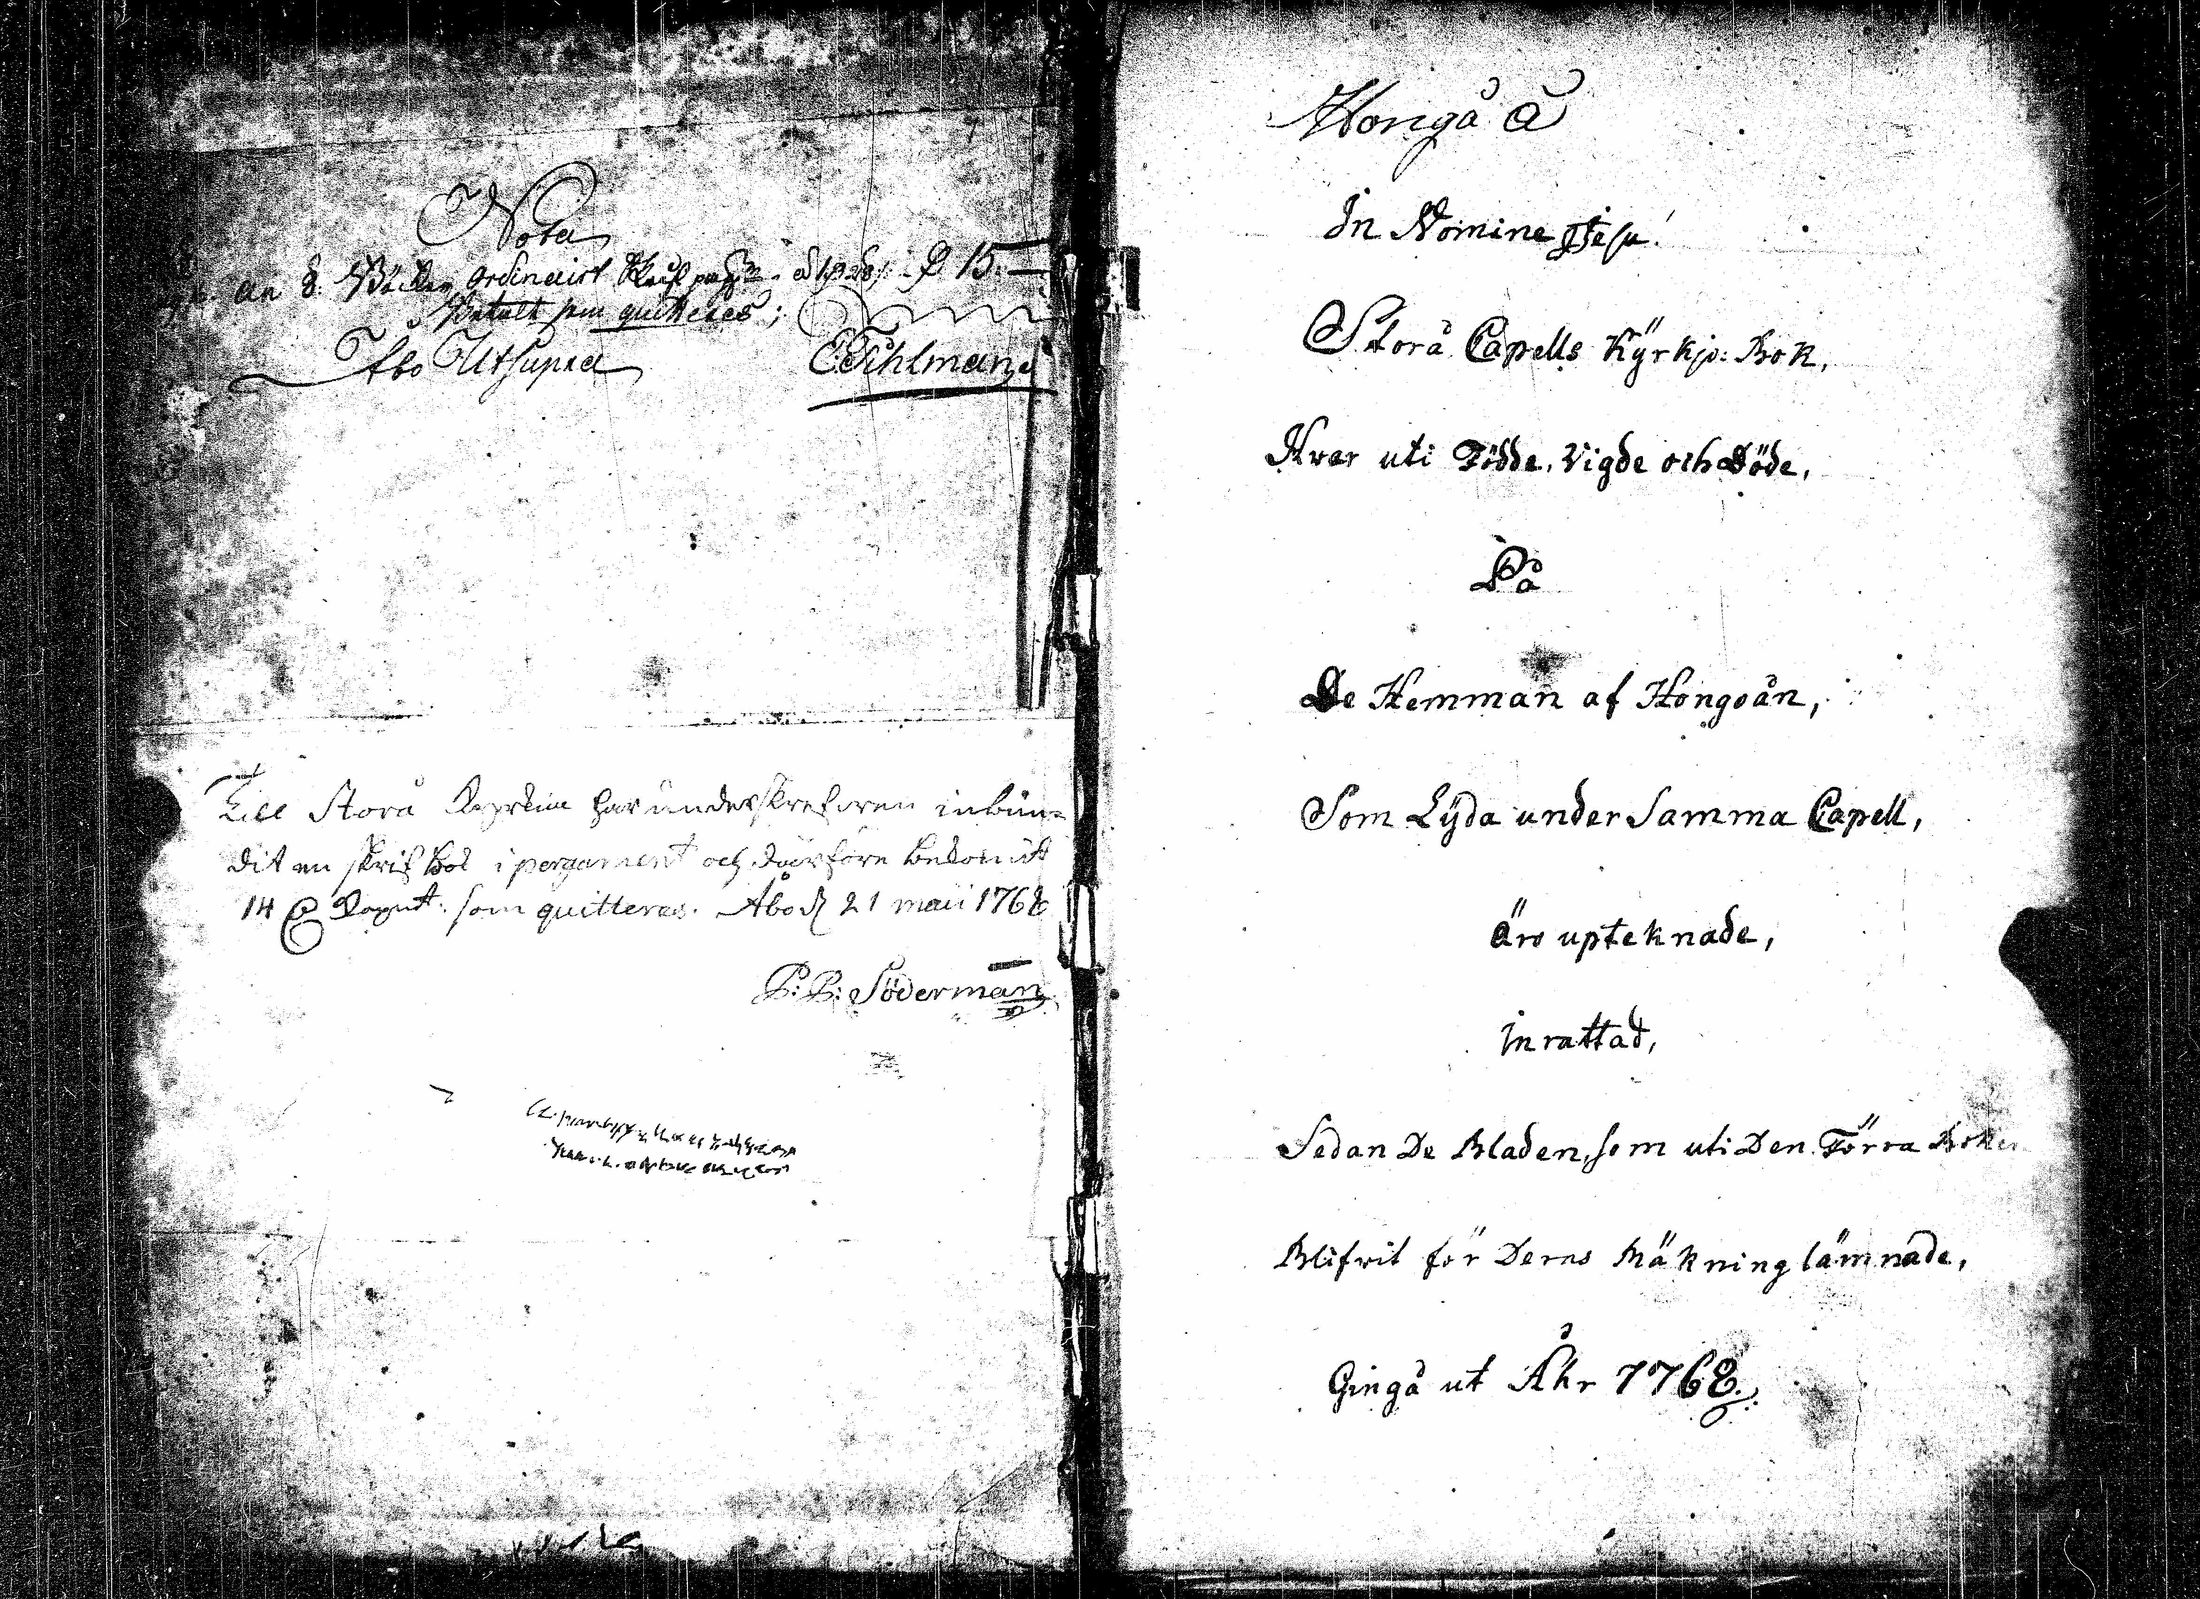 Nota
an 8. Böcker ordinairt
Betalt som quitteras;
Åbo Utsupra E. Tihlman
Till Storå Kyrkia har underskrefwen inbun-
dit en skrif bok i pergament och därföre bekomit
14 Kopmt. som quitteras. Åbo d 21 maii 1768
P: P: Söderman
Hongå å
In Nomine Jesu!
Storå Capells Kÿrkjo: Bok,
Hvar uti Födde, Vigde och Döde,
På
De Hemman af Hongoån,
Som Lÿda under Samma Capell,
äro upteknade,
inrattad,
Sedan De Bladen, som uti Den Förra Boken
Blifvit för Deras Räkning lämnade,
Gingå ut Åhr 1768.